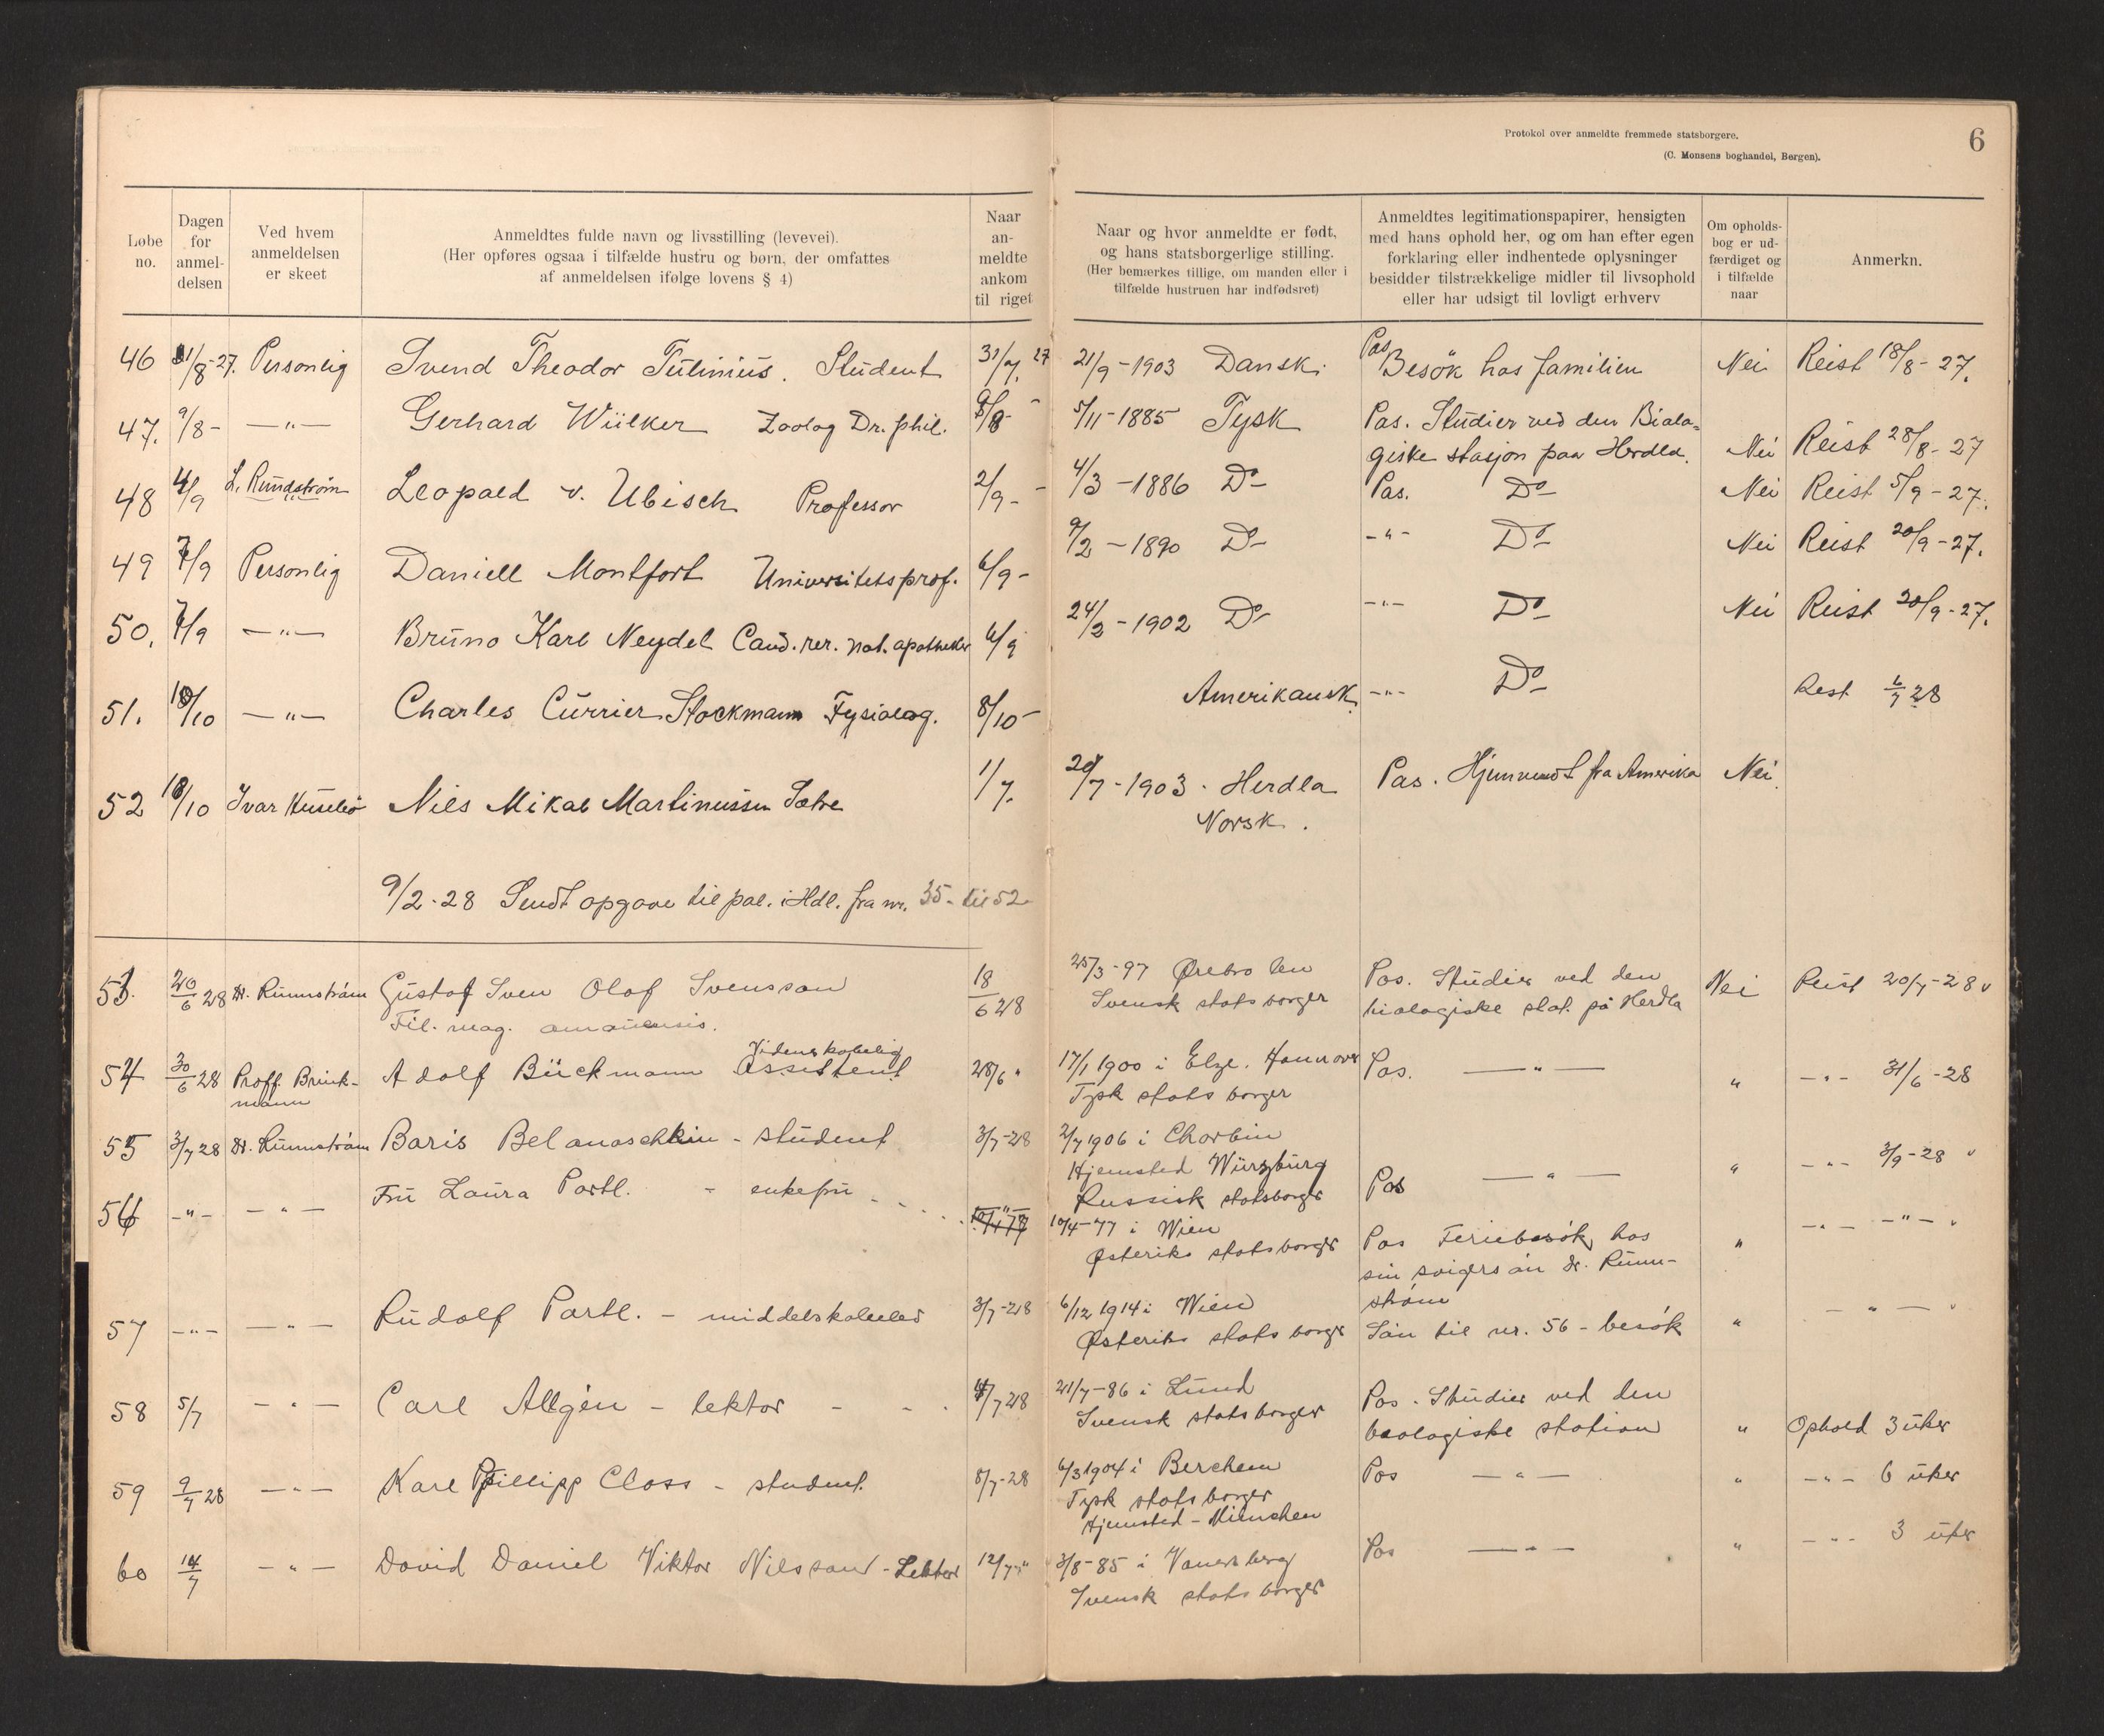 Protokol over anmeldte fremmede statsborgere.
(C. Monsens boghandel, Bergen).
6
Løbe no.
Dagen for anmel-delsen
Ved hvem anmeldelsen er skeet
Anmeldtes fulde navn og livsstilling (levevei).
(Her opføres ogsaa i tilfælde hustru og børn, der omfattes
af anmeldelsen ifølge lovens § 4)
Naar an-meldte ankom til riget
Naar og hvor anmeldte er født,
og hans statsborgerlige stilling.
(Her bemærkes tillige, om manden eller i
tilfælde hustruen har indfødsret)
Anmeldtes legitimationspapirer, hensigten
med hans ophold her, og om han efter egen
forklaring eller indhentede oplysninger
besidder tilstrækkelige midler til livsophold
eller har udsigt til lovligt erhverv
Om opholds-bog er ud-færdiget og i tilfælde naar
Anmerkn.
46 1/8-27. Personlig Svend Theodor Tulinius. Student 31/7. 27 21/9-1903 Dansk. Pas Besök hos familien Nei Reist 18/8-27.
47. 9/8- —"— Gerhard Wülker Zoolog Dr. phil. 9/8- 5/11-1885 Tysk Pas. Studier ved den Biolo-
giske stasjon paa Herdla. Nei Reist 28/8-27
48 4/9 L. Rundström Leopold v. Ubisch Professor 2/9- 4/3-1886 Do Pas. Do Nei Reist 5/9-27.
49 7/9 Personlig Daniell Montfort Universitetsprof. 6/9- 9/2-1890 Do -"- Do Nei Reist 20/9-27.
50. 7/9 —"— Bruno Karl Neydel Cand. rer. nat. apotheker 6/9 24/2-1902 Do -"- Do Nei Reist 20/9-27.
51. 10/10 —"— Charles Currier Stockmann Fysiolog. 8/10- Amerikansk -"- Do Rest 6/7 28
52 18/10 Ivar Husebö Nils Mikal Martinussen Sætre 1/7. 20/7-1903. Herdla Pas. Hjemvendt fra Amerika Nei.
Norsk.
9/2-28 Sendt opgave til pol. i Hdl. fra nr. 35- til 52
53. 20/6 28 Dr. Runnström Gustaf Sven Olof Svensson 18/6 28 25/3-97 Ørebro len Pas. Studier ved den Nei Reist 20/7-28
Fil. mag. amanuensis. Svensk statsborger biologiske stat. på Herdla
54 30/6 28 Proff. Brink-
mann Adolf Bückmann Videnskabelig Assistent 28/6 " 17/1 1900 i Elze. Hannover Pas. —"— " -"- 31/6-28
Tysk statsborger
55 3/7 28 Dr. Runnström Boris Belanoschkin - student 3/7-28 2/7 1906 i Chorbin
Hjemsted Würzburg Pas —"— " -"- 3/9-28
Russisk statsborger
56 -"- -"- Fru Laura Partl. - enkefru 10/4-77 i Wien
Østeriks statsborger Pas Feriebesök hos " -"- -"-
sin svigersön dr. Runn-
ström
57 -"- —"— Rudolf Partl. - middelskoleelev 3/7-28 6/12 1914 i Wien
Østeriks statsborger Sön til nr. 56 - besök " —"—
58 5/7 -"- Carl Allgén - lektor 4/7 28 21/7-86 i Lund Pas. Studier ved den
Svensk statsborger beologiske station " Ophold 3 uker
59 9/7 28 —"— Karl Phillipp Closs - student. 8/7-28 6/3 1904 i Berchem Pas —"— " -"- 6 uker
Tysk statsborger
Hjemsted - München
60 14/7 -"- David Daniel Viktor Nilsson - Lektor 12/7 " 3/8-85 i Vanersborg Pas —"— " -"- 3 uker
Svensk statsborger